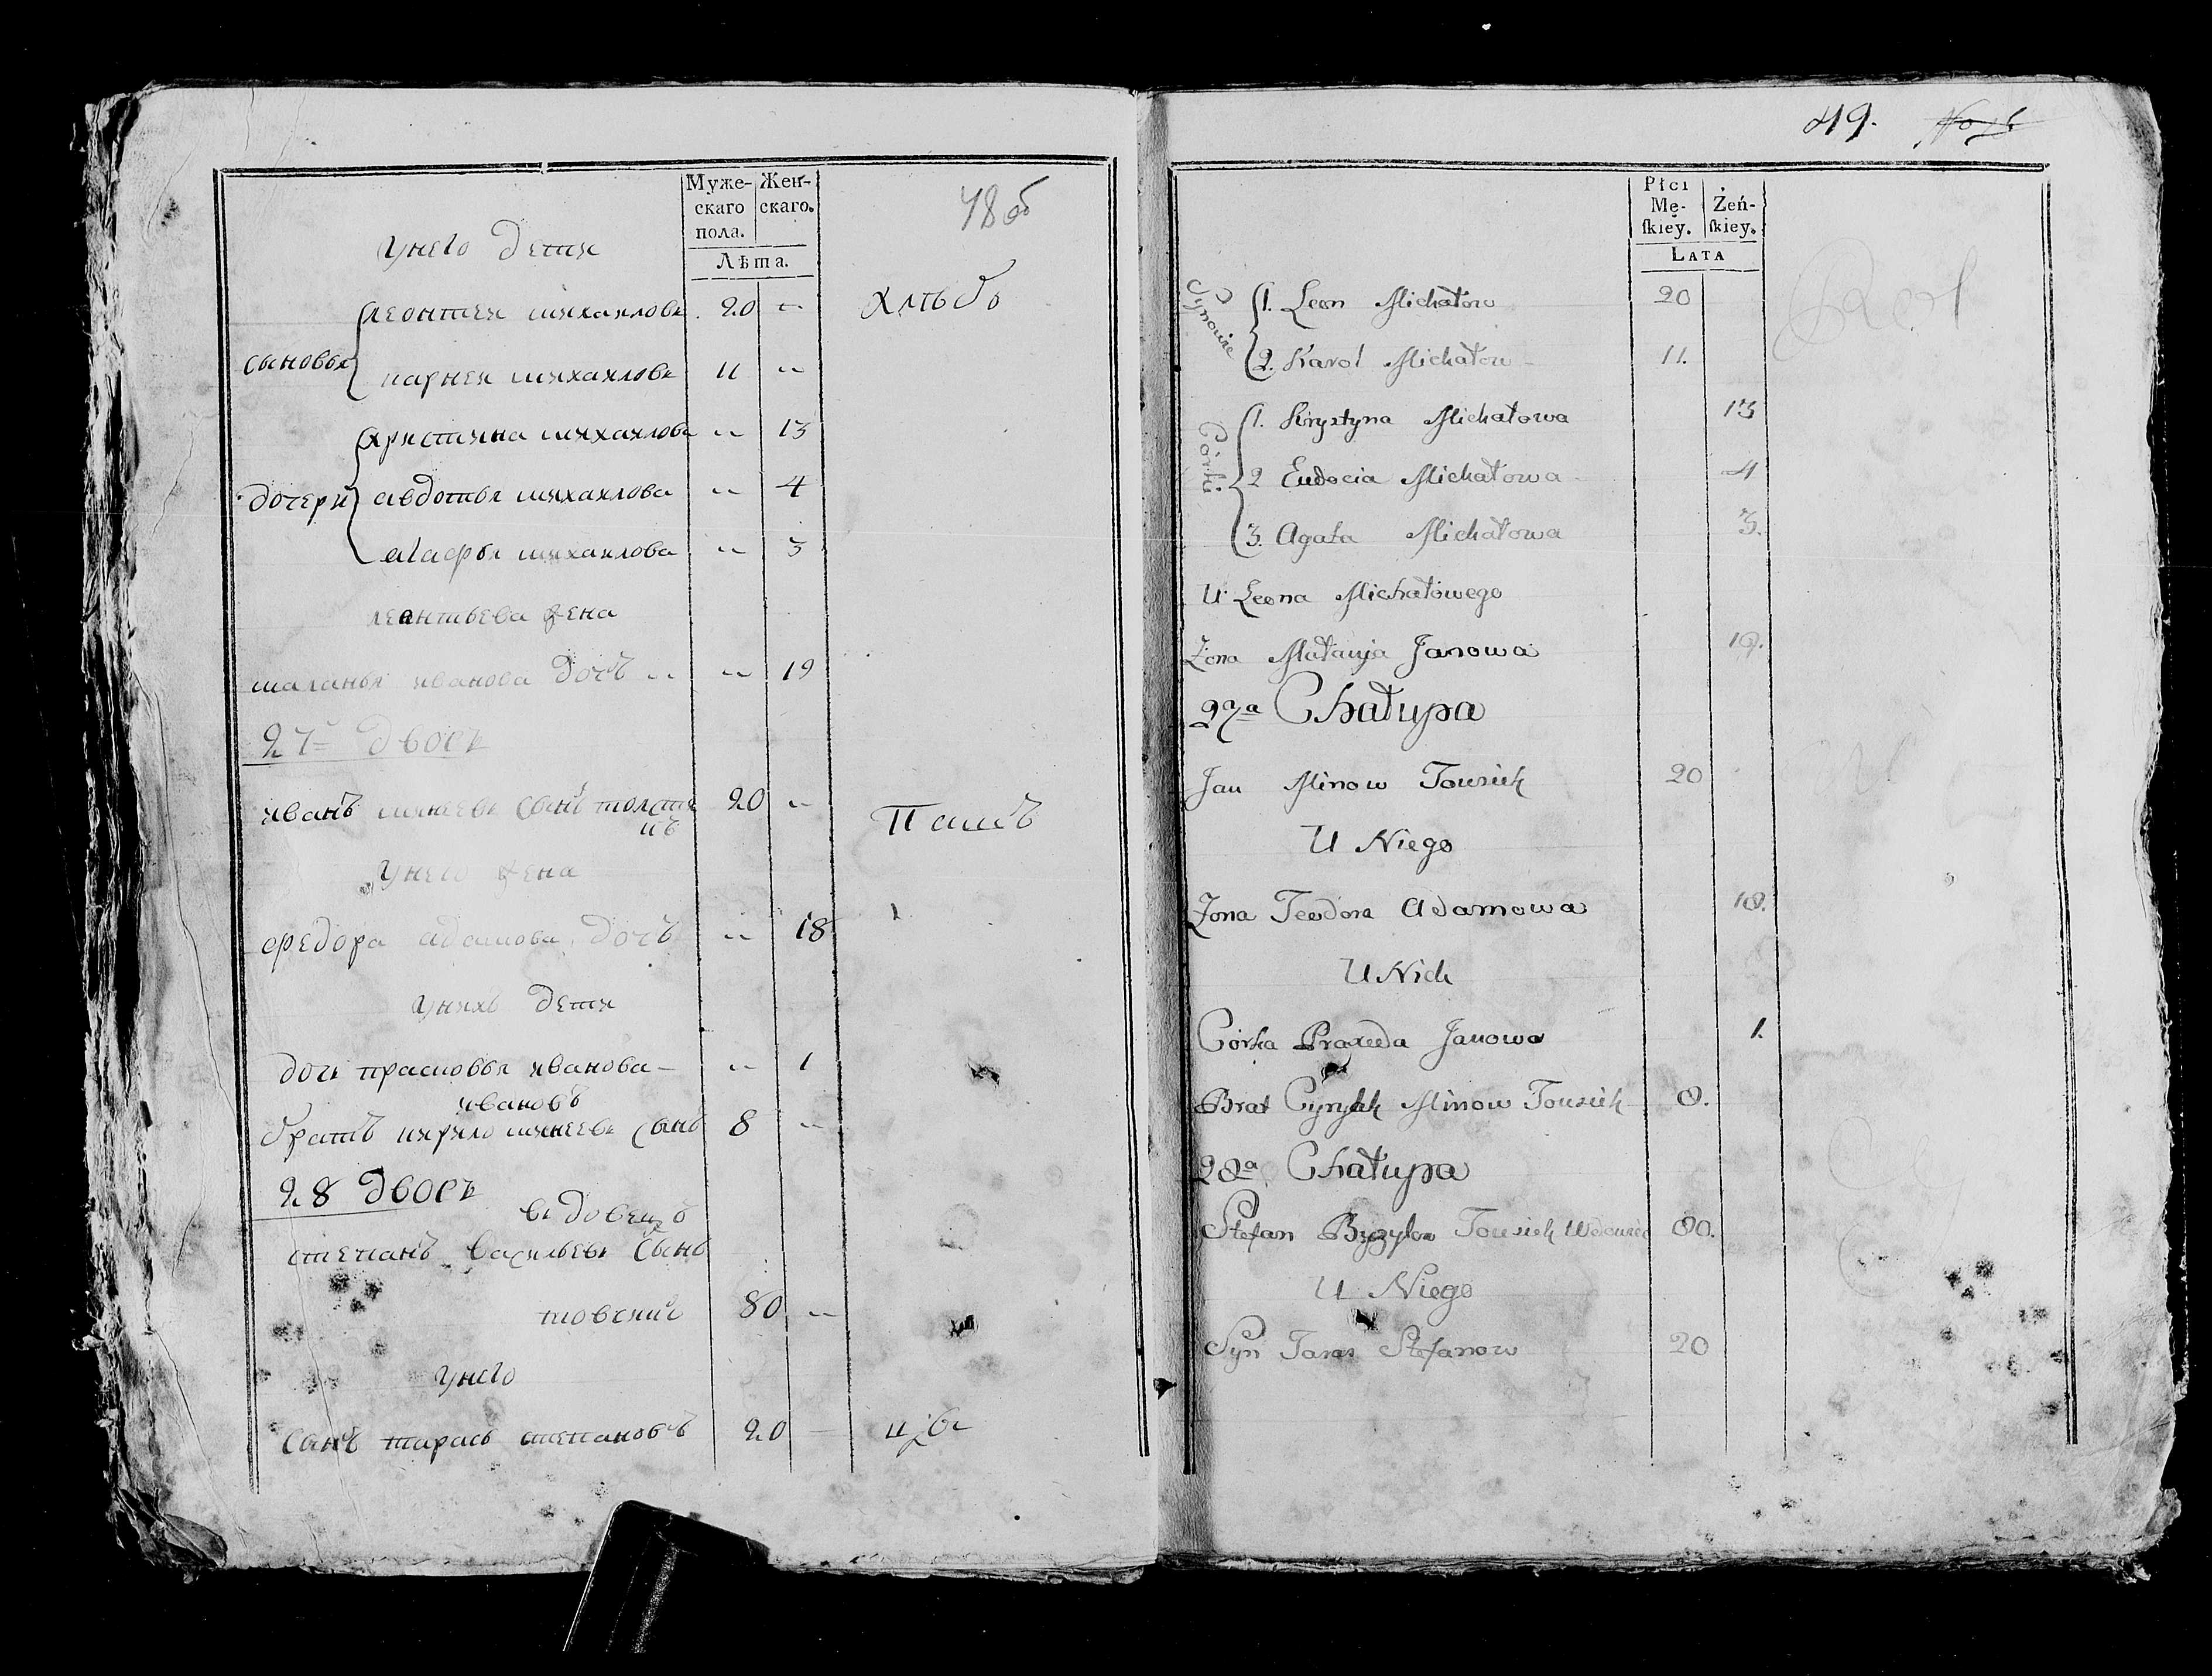 48 об
Муже-
скаго
пола.
Жен-
скаго.
Лѣта.
Унего дети
сыновья
леонтеи михаилове 20 --
хлѣбъ
парнеи михаилове 11 --
дочери
христина михаилова -- 13
авдотья михаилова -- 4
агафья михаилова -- 3
леантьева жена
маланья иванова дочъ -- -- 19
27й дворъ
иванъ минеевъ сынъ 20 --
Пашъ
Унего жена
федора адамова дочъ -- 18
Унихъ дети
дочь прасковья иванова -- 1
ивановъ
братъ кирило минеевъ сынъ 8 --
28 дворъ
вьдовецъ
степанъ васильевъ сынъ
товсикъ 80 --
Унего
сынъ тарасъ степановъ 20
49.
Płci
Mę-
ſkiéy.
Żeń-
ſkiey.
LATA
Synowie
1. Leon Michałow 20
2. Karol Michałow - 11.
Córki
1. Krystyna Michałowa 13
2 Eudocia Michałowa - 4
3. Agata Michałowa 3.
U Leona Michałowego
Żona Małanja Janowa 19.
27a Chałupa
Jan Minow Towsick 20
U Niego
Żona Teodora Adamowa 18.
U Nich
Córka Praxeda Janowa 1.
Brat Cyrylk Minow Towsick 8.
28a Chałupa
Stefan Bazylow Towsick Wdowiec 80.
U Niego
Syn Taras Stefanow 20